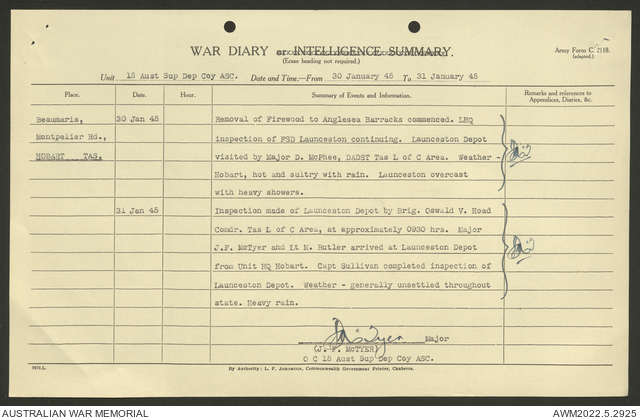 WAR DIARY or INTELLIGENCE SUMMARY.
(Erase heading not required.)
Army Form C. 2118.
(adapted.)
Unit 18 Aust Sup Dep Coy ASC. Date and Time.—From 30 January 45 To 31 January 45
Place. Date. Hour. Summary of Events and Information. Remarks and references to Appendices, Diaries, &c.
Beaumaris, 30 Jan 45 Removal of Firewood to Anglesea Barracks commenced. LHQ
Montpelier Rd., inspection of FSD Launceston continuing. Launceston Depot
HOBART TAS. visited by Major D. McPhee, DADST Tas L of C Area. Weather -
Hobart, hot and sultry with rain. Launceston overcast
with heavy showers.
31 Jan 45 Inspection made of Launceston Depot by Brig. Oswald V. Hoad
Comdr. Tas L of C Area, at approximately 0930 hrs. Major
J.F. McTyer and Lt M. Butler arrived at Launceston Depot
from Unit HQ Hobart. Capt Sullivan completed inspection of
Launceston Depot. Weather - generally unsettled throughout
state. Heavy rain.
Major
(J. F. McTYER)
O C 18 Aust Sup Dep Coy ASC.
By Authority: L. F. Johnston, Commonwealth Government Printer, Canberra.
AUSTRALIAN WAR MEMORIAL
AWM2022.5.2925